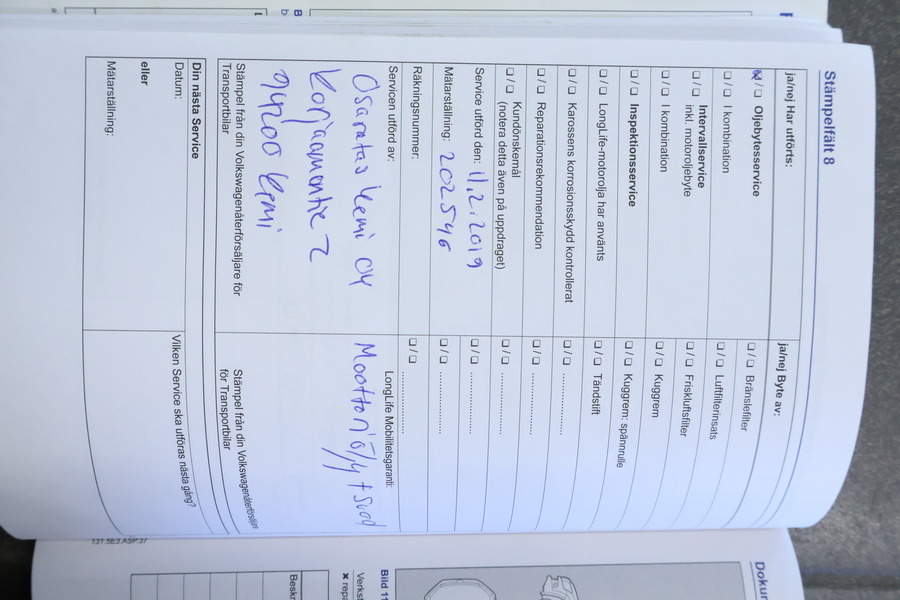 Stämpelfält 8
ja/nej Har utförts:
ja/nej Byte av:
❑ / ❑ Oljebytesservice
❑ / ❑ Bränslefilter
❑ / ❑ I kombination
❑ / ❑ Luftfilterinsats
❑ / ❑ Intervallservice
inkl. motoroljebyte
❑ / ❑ Friskluftsfilter
❑ / ❑ I kombination
❑ / ❑ Kuggrem
❑ / ❑ Inspektionsservice
❑ / ❑ Kuggrem: spännrulle
❑ / ❑ LongLife-motorolja har använts
❑ / ❑ Tändstift
❑ / ❑ Karossens korrosionsskydd kontrollerat
❑ / ❑ ..............
❑ / ❑ Reparationsrekommendation
❑ / ❑ ..............
❑ / ❑ Kundönskemål
(notera detta även på uppdraget)
❑ / ❑ ..............
Service utförd den: 11.2.2019
❑ / ❑ ..............
Mätarställning: 202546
❑ / ❑ ..............
Räkningsnummer:
❑ / ❑ ..............
Servicen utförd av:
LongLife Mobilitetsgaranti:
Osaratas Kemi Oy
Moottoriöljy + suod
Korjaamontie 2
94700 Kemi
Stämpel från din Volkswagenåterförsäljare för
Transportbilar
Stämpel från din Volkswagenåterförsäljare
för Transportbilar
Din nästa Service
Datum:
Vilken Service ska utföras nästa gång?
eller
Mätarställning:
131.5E3.ASP.37
Bild 11